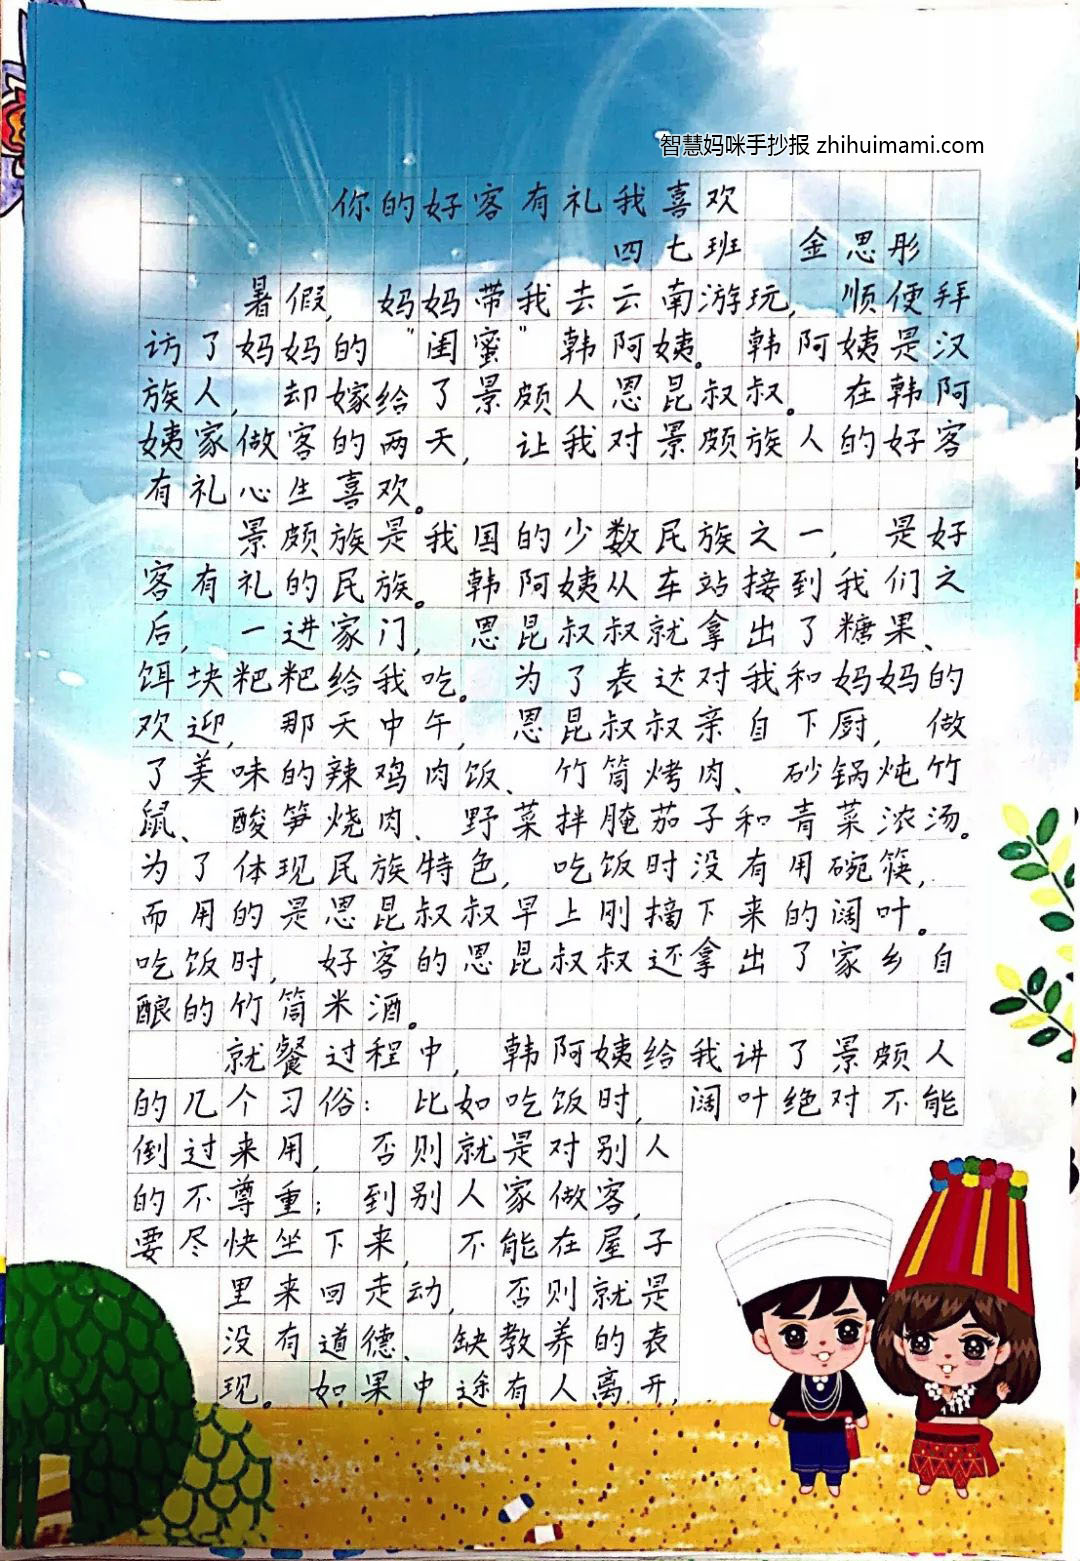 智慧妈咪手抄报 zhihuimami.com
你的好客有礼我喜欢
四七班 金思彤
暑假,妈妈带我去云南游玩,顺便拜
访了妈妈的"闺蜜"韩阿姨。韩阿姨是汉
族人,却嫁给了景颇人恩昆叔叔。在韩阿
姨家做客的两天,让我对景颇族人的好客
有礼心生喜欢。
景颇族是我国的少数民族之一,是好
客有礼的民族。韩阿姨从车站接到我们之
后,一进家门,恩昆叔叔就拿出了糖果、
饵块粑粑给我吃。为了表达对我和妈妈的
欢迎,那天中午,恩昆叔叔亲自下厨,做
了美味的辣鸡肉饭、竹筒烤肉、砂锅炖竹
鼠、酸笋烧肉、野菜拌腌茄子和青菜浓汤。
为了体现民族特色,吃饭时没有用碗筷,
而用的是恩昆叔叔早上刚摘下来的阔叶。
吃饭时,好客的恩昆叔叔还拿出了家乡自
酿的竹筒米酒。
就餐过程中,韩阿姨给我讲了景颇人
的几个习俗:比如吃饭时,阔叶绝对不能
倒过来用,否则就是对别人
的不尊重;到别人家做客,
要尽快坐下来,不能在屋子
里来回走动,否则就是
没有道德、缺教养的表
现。如果中途有人离开,